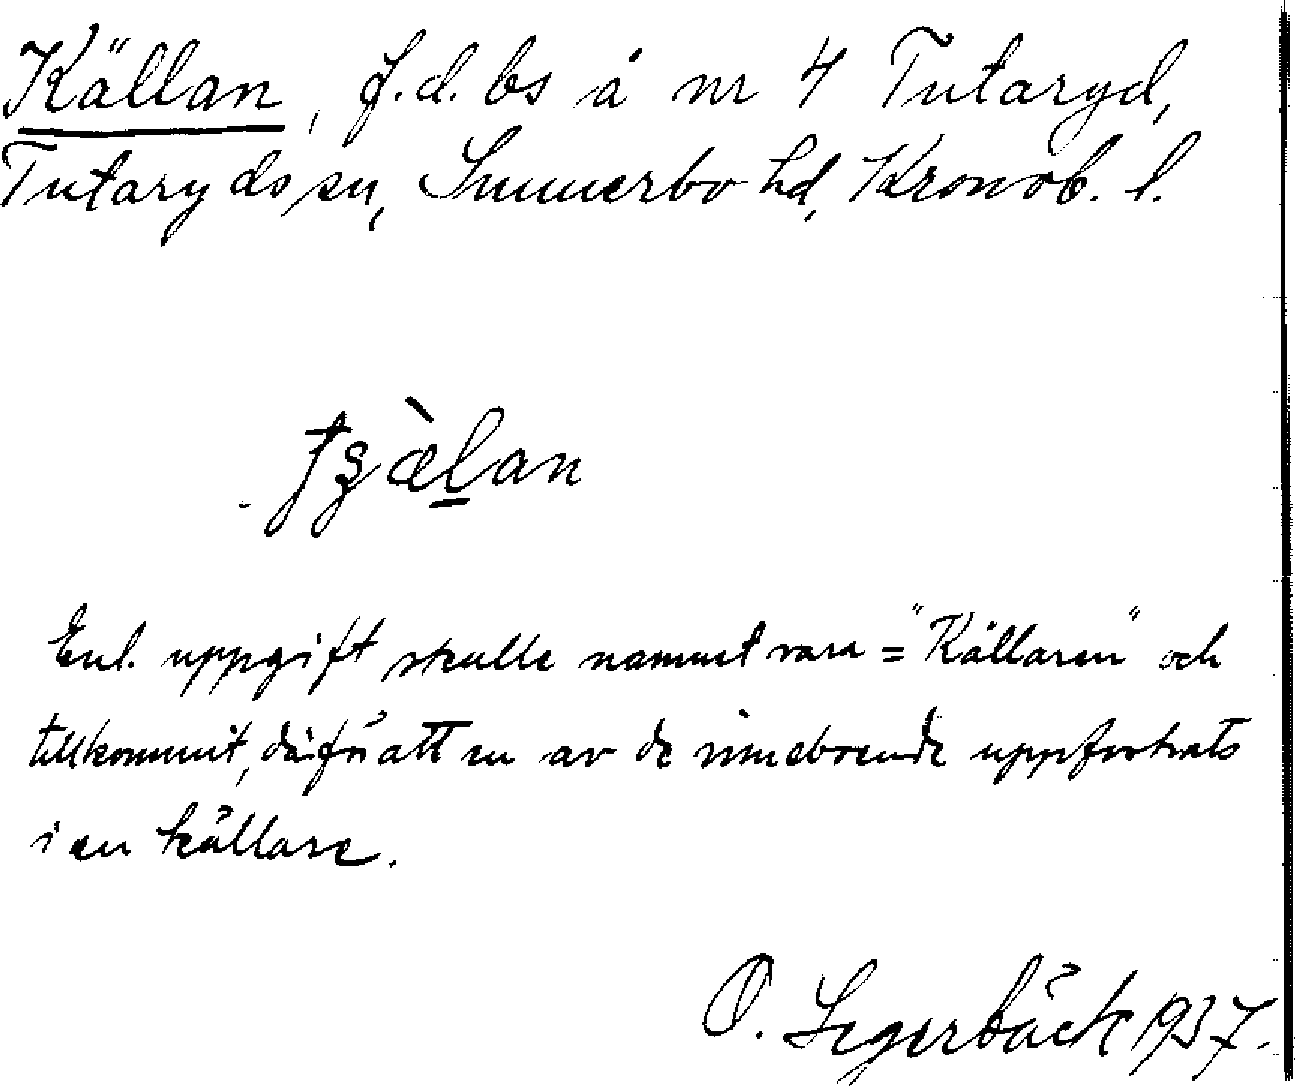 Källan, f.d. bs å nr 4 Tutaryd,
Tutaryds sn, Sunnerbo hd, Kronob. l.
ʃʒæ̀l̲an
Enl. uppgift skulle namnet vara = "Källaren" och
tillkommit, därför att en av de inneboende uppfostrats
i en källare.
O. Segerbäck 1937.